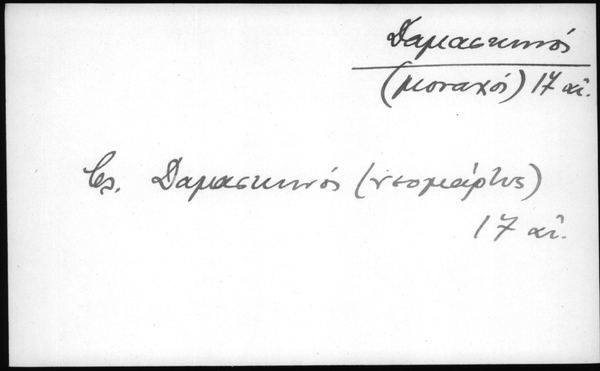 Δαμασκηνός
(μοναχός) 17 αἰ.
βλ. Δαμασκηνός (νεομάρτυς)
17 αἰ.